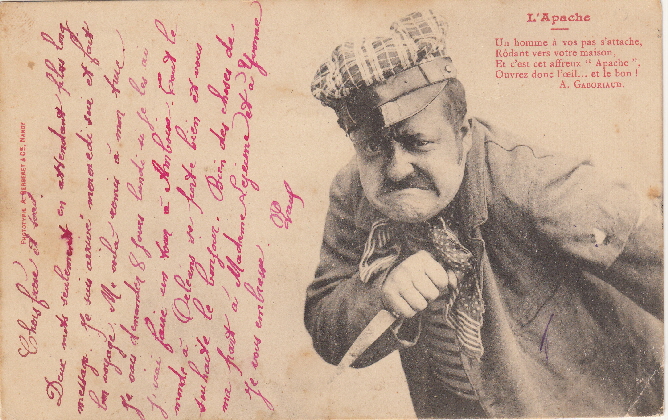 L'Apache
Un homme à vos pas s'attache,
Rôdant vers votre maison,
Et c'est cet affreux " Apache ".
Ouvrez donc l'œil... et le bon !
A. GABORIAUD.
PHOTOTYPIE A. BERGERET & Cie, NANCY
Chers frère et
mots seulement en attendant plus long
message je suis arrivé mercredi soir et fait
bon voyage. Me voilà remis à mon truc.
Je vais demander 8 jours lundi si je les ai
faire un tour à Amboise. Tout le
monde à Orléans se porte bien et vous
souhaite le bonjour. Bien des choses de
ma part à Madame Lejeune et à Yvonne
Je vous embrasse. Paul